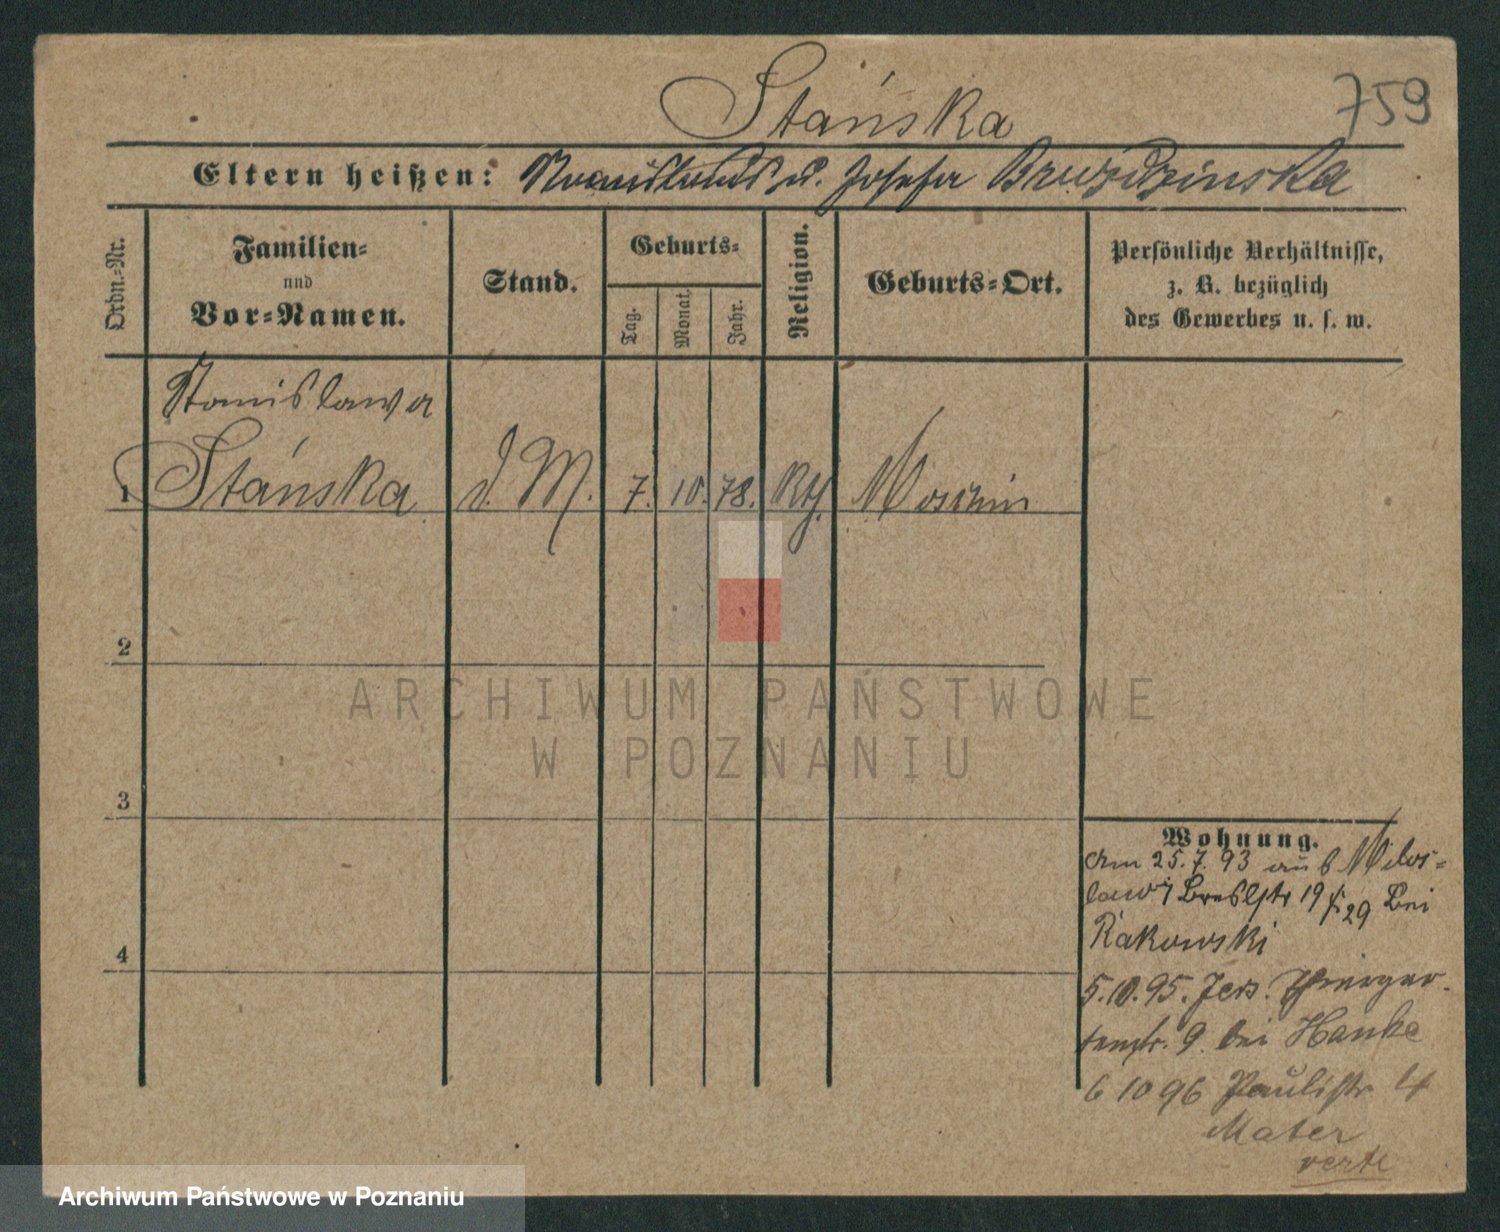 Stańska
759
Eltern heißen: Stanislaus u. Josefa Bruzdzinska
Ordn.-Nr.
Familien-
und
Vor-Namen.
Stand.
Geburts-
Tag.
Monat.
Jahr.
Religion.
Geburts-Ort.
Persönliche Verhältnisse,
z. B. bezüglich
des Gewerbes u. s. w.
Stanislawa
1 Stańska d. M. 7. 10. 78. Kth. Moschin
2
ARCHIWUM PAŃSTWOWE
W POZNANIU
3
4
Wohnung.
Am 25.7.93 aus Milos-
law Breslstr 19 29 bei
Rakowski
5.10.95. Jers. Thiergar-
tenstr. 9. bei Hanke
6 10 96 Paulistr 4
Mater
verte
Archiwum Państwowe w Poznaniu